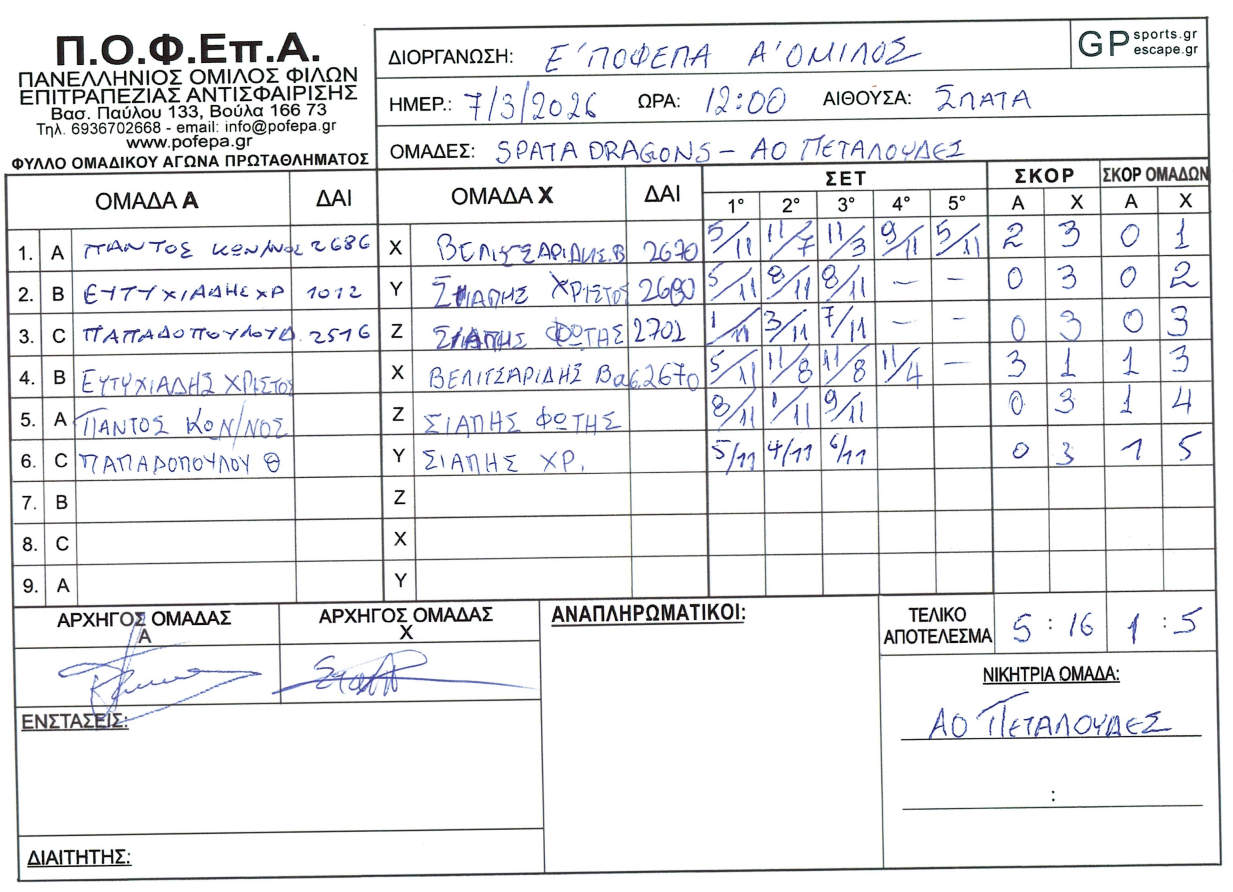 Π.Ο.Φ.Επ.Α.
ΠΑΝΕΛΛΗΝΙΟΣ ΟΜΙΛΟΣ ΦΙΛΩΝ
ΕΠΙΤΡΑΠΕΖΙΑΣ ΑΝΤΙΣΦΑΙΡΙΣΗΣ
Βασ. Παύλου 133, Βούλα 166 73
Τηλ. 6936702668 - email: info@pofepa.gr
www.pofepa.gr
ΦΥΛΛΟ ΟΜΑΔΙΚΟΥ ΑΓΩΝΑ ΠΡΩΤΑΘΛΗΜΑΤΟΣ
ΔΙΟΡΓΑΝΩΣΗ: Ε' ΠΟΦΕΠΑ Α' ΟΜΙΛΟΣ
GP sports.gr escape.gr
ΗΜΕΡ.: 7/3/2026 ΩΡΑ: 12:00 ΑΙΘΟΥΣΑ: ΣΠΑΤΑ
ΟΜΑΔΕΣ: SPATA DRAGONS - ΑΟ ΠΕΤΑΛΟΥΔΕΣ
ΟΜΑΔΑ Α ΔΑΙ ΟΜΑΔΑ Χ ΔΑΙ ΣΕΤ ΣΚΟΡ ΣΚΟΡ ΟΜΑΔΩΝ
1° 2° 3° 4° 5° Α Χ Α Χ
1. A ΠΑΝΤΟΣ ΚΩΝ/ΝΟΣ 2686 X ΒΕΛΙΤΣΑΡΙΔΗΣ.Β 2670 5/11 11/7 11/3 9/11 5/11 2 3 0 1
2. B ΕΥΤΥΧΙΑΔΗΣ ΧΡ 1012 Y ΣΙΑΠΗΣ ΧΡΙΣΤΟΣ 2680 5/11 8/11 8/11 - - 0 3 0 2
3. C ΠΑΠΑΔΟΠΟΥΛΟΥ Θ. 2516 Z ΣΙΑΠΗΣ ΦΩΤΗΣ 2702 1/11 3/11 7/11 - - 0 3 0 3
4. B ΕΥΤΥΧΙΑΔΗΣ ΧΡΙΣΤΟΣ X ΒΕΛΙΤΣΑΡΙΔΗΣ Βας. 2670 5/11 11/8 11/8 11/4 - 3 1 1 3
5. A ΠΑΝΤΟΣ ΚΩΝ/ΝΟΣ Z ΣΙΑΠΗΣ ΦΩΤΗΣ 8/11 1/11 9/11 0 3 1 4
6. C ΠΑΠΑΔΟΠΟΥΛΟΥ Θ Y ΣΙΑΠΗΣ ΧΡ. 5/11 4/11 6/11 0 3 1 5
7. B Z
8. C X
9. A Y
ΑΡΧΗΓΟΣ ΟΜΑΔΑΣ Α ΑΡΧΗΓΟΣ ΟΜΑΔΑΣ Χ ΑΝΑΠΛΗΡΩΜΑΤΙΚΟΙ: ΤΕΛΙΚΟ ΑΠΟΤΕΛΕΣΜΑ 5 : 16 1 : 5
ΝΙΚΗΤΡΙΑ ΟΜΑΔΑ:
ΑΟ ΠΕΤΑΛΟΥΔΕΣ
ΕΝΣΤΑΣΕΙΣ:
:
ΔΙΑΙΤΗΤΗΣ: